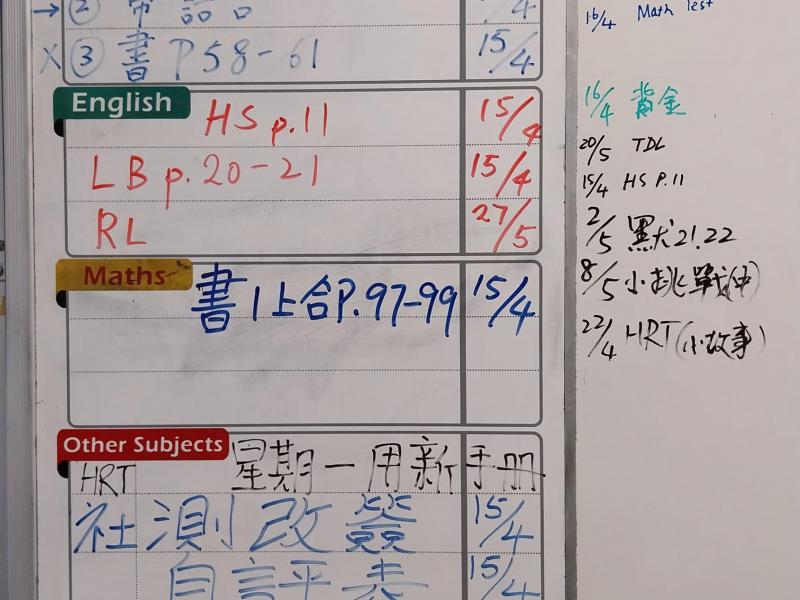 → ② 常 語 /4
X ③ 書 P58-61 15/4
English
HS p.11 15/4
LB p.20-21 15/4
RL 27/5
Maths
書1上合P.97-99 15/4
Other Subjects
HRT 星期一用新手册
社測改簽 15/4
自評表 15/4
16/4 Math Test
16/4 賞金
20/5 TDL
15/4 HS P.11
2/5 默21.22
8/5 小挑戰(中)
22/4 HRT(小故事)